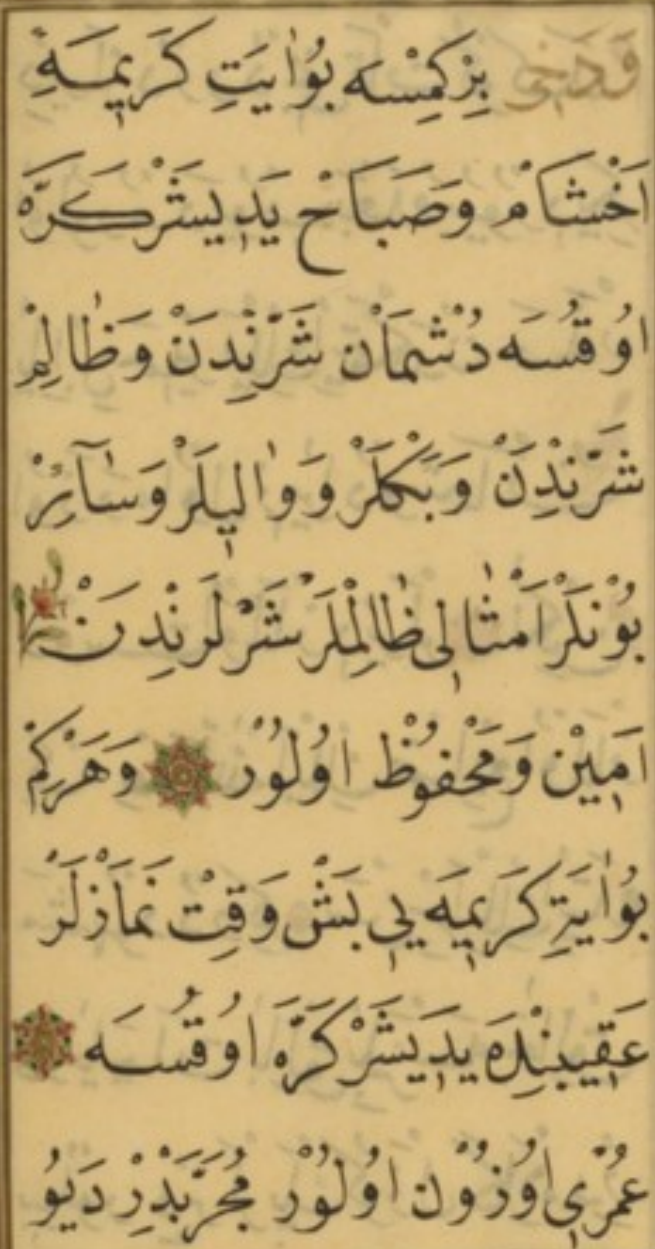 وَدَخِی بِرْكِمْسه بُوٰايَتِ كَرٖيمَهِ
اَخْشَامْ وَصَبَاحْ يَدٖيشَرْكَرَّه
اوُقُسَه دُشْمَانْ شَرِّنْدَنْ وَظَالِمْ
شَرِّنْدِنْ وَبَكْلَرْ وَوٰالٖيلَرْ وَسَآئِرْ
بُوُنْلَرْ اَمْثٰالٖی ظَالِمْلَرْ شَرْلَرِنْدِنْ
اَمٖينْ وَمَحْفُوُظْ اوُلُوُرْ وَهَرْكِمْ
بُوٰايَتِ كَرٖيمَه يٖی بَشْ وَقِتْ نَمَازْلَرْ
عَقٖيبِنْدَه يَدٖيشَرْ كَرَّه اوُقُسَه
عُمْرٖی اوُزُوُنْ اوُلُوُرْ مُجَرَّبْدِرْ دَيُو